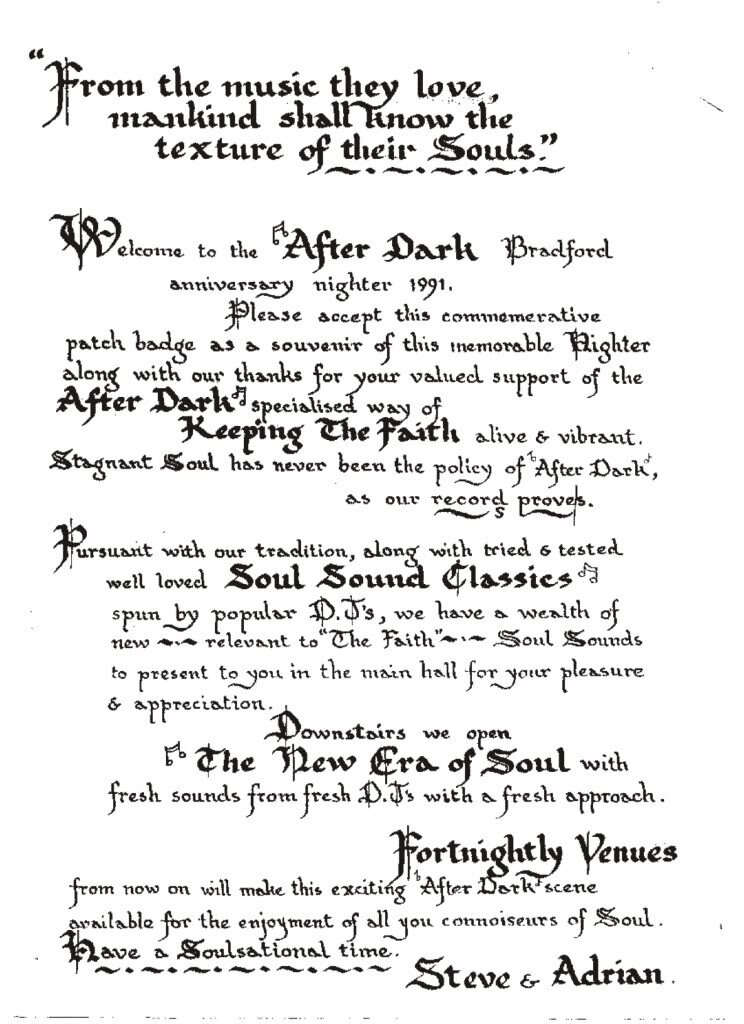 "From the music they love,
mankind shall know the
texture of their Souls."
Welcome to the After Dark Bradford
anniversary nighter 1991.
Please accept this commemerative
patch badge as a souvenir of this memorable Nighter
along with our thanks for your valued support of the
After Dark specialised way of
Keeping The Faith alive & vibrant.
Stagnant Soul has never been the policy of After Dark,
as our records proves.
Pursuant with our tradition, along with tried & tested
well loved Soul Sound Classics
spun by popular D.J's, we have a wealth of
new ~·~ relevant to "The Faith" ~·~ Soul Sounds
to present to you in the main hall for your pleasure
& appreciation.
Downstairs we open
The New Era of Soul with
fresh sounds from fresh D.J's with a fresh approach.
Fortnightly Venues
from now on will make this exciting After Dark scene
available for the enjoyment of all you connoiseurs of Soul.
Have a Soulsational time.
Steve & Adrian.